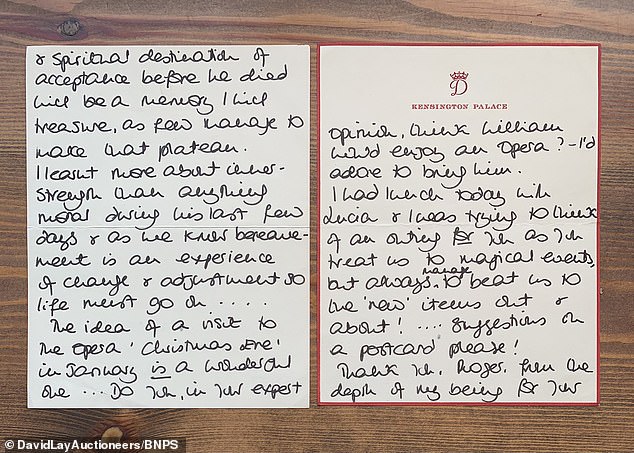 & spiritual destination of
acceptance before he died
will be a memory I will
treasure, as few manage to
make that plateau.
I learnt more about inner-
strength than anything
moral during his last few
days & as we know bereave-
ment is an experience
of change & adjustment so
life must go on . . . .
The idea of a visit to
the opera 'Christmas Eve'
in January is a wonderful
one ... Do you, in your expert
D
KENSINGTON PALACE
opinion, think William
would enjoy an opera? - I'd
adore to bring him.
I had lunch today with
Lucia & I was trying to think
of an outing for you as you
treat us to magical events,
but always manage to beat us to
the 'new' items out &
about! .... suggestions on
a postcard please!
Thank you, Roger, from the
depth of my being for your
© DavidLayAuctioneers/BNPS